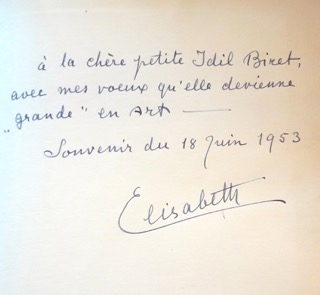 à la chère petite Idil Biret,
avec mes voeux qu'elle devienne
„grande" en Art —
Souvenir du 18 Juin 1953
Elisabeth